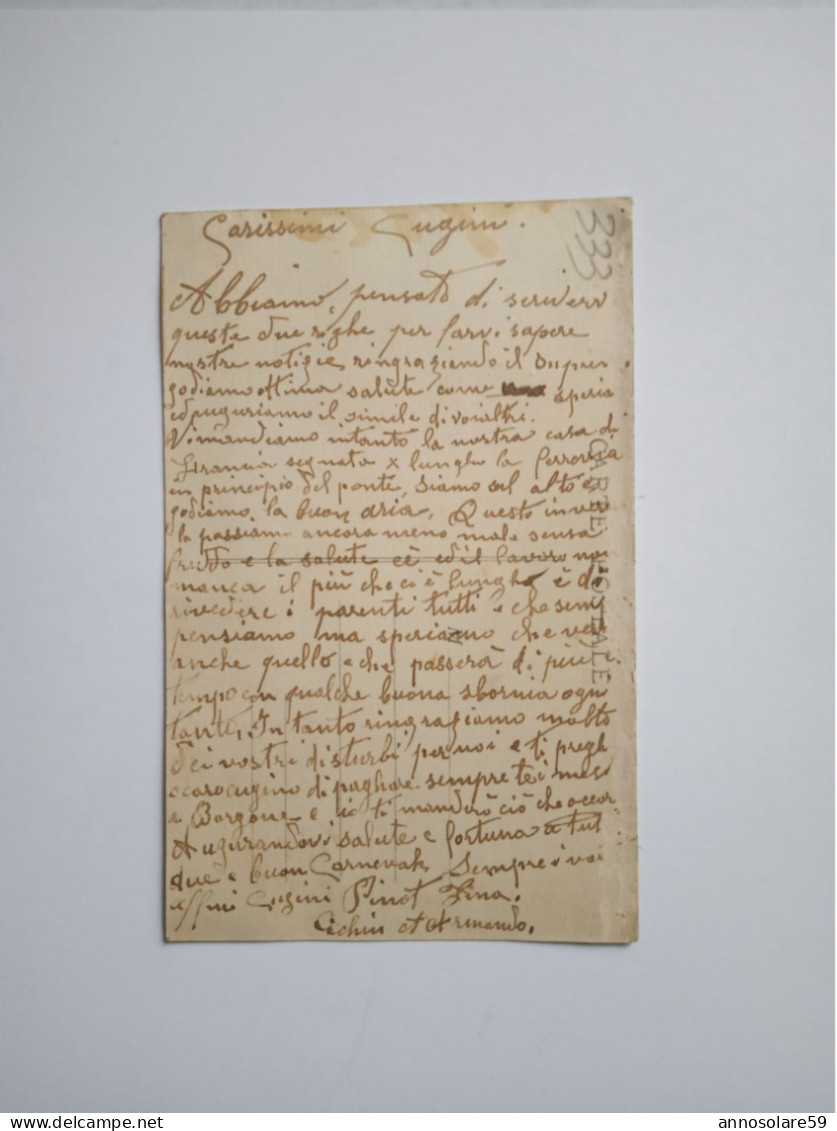 Carissimi Cugini.
333
Abbiamo, pensato di scriverv
queste due righe per farvi sapere
nostre notizie, ringraziendo il Suprem
godiamo ottima salute come speria
ed auguriamo il simile di voialtri.
Vi mandiamo intanto la nostra casa di
Francia segnata x lungho la ferrovia
in principio del ponte, siamo al alto e
godiamo la buon aria, Questo inver
la passiamo ancora meno male sensa
freddo e la salute ce ed il lavoro no
manca il più che ci è lungho è di
rivedere i parenti tutti e che sem
pensiamo ma speriamo che ver
anche quello e che passerà di più
tempo con qualche buona sbornia ogni
tanto, In tanto ringraziamo molto
dei vostri disturbi per noi e ti pregh
o caro cugino di paghare sempre te i mes
a Borgone e io ti manderò ciò che occor
Augurandovi salute e fortuna a tut
due e buon Carnevale, Sempre i voi
affmi Cugini Pinot Fina.
Cichin et Armando.
CARTE POSTALE
delcampe.net
annosolare59